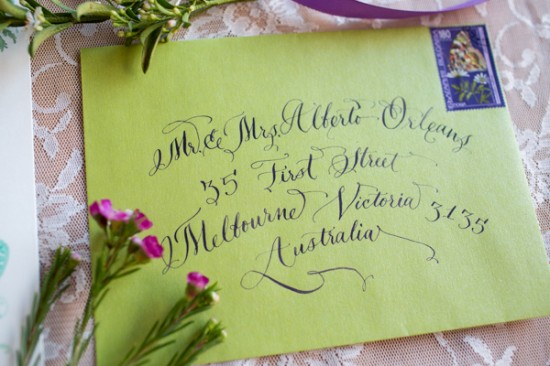 Mr. & Mrs. Alberto Orleans
35 First Street
Melbourne Victoria 3135
Australia